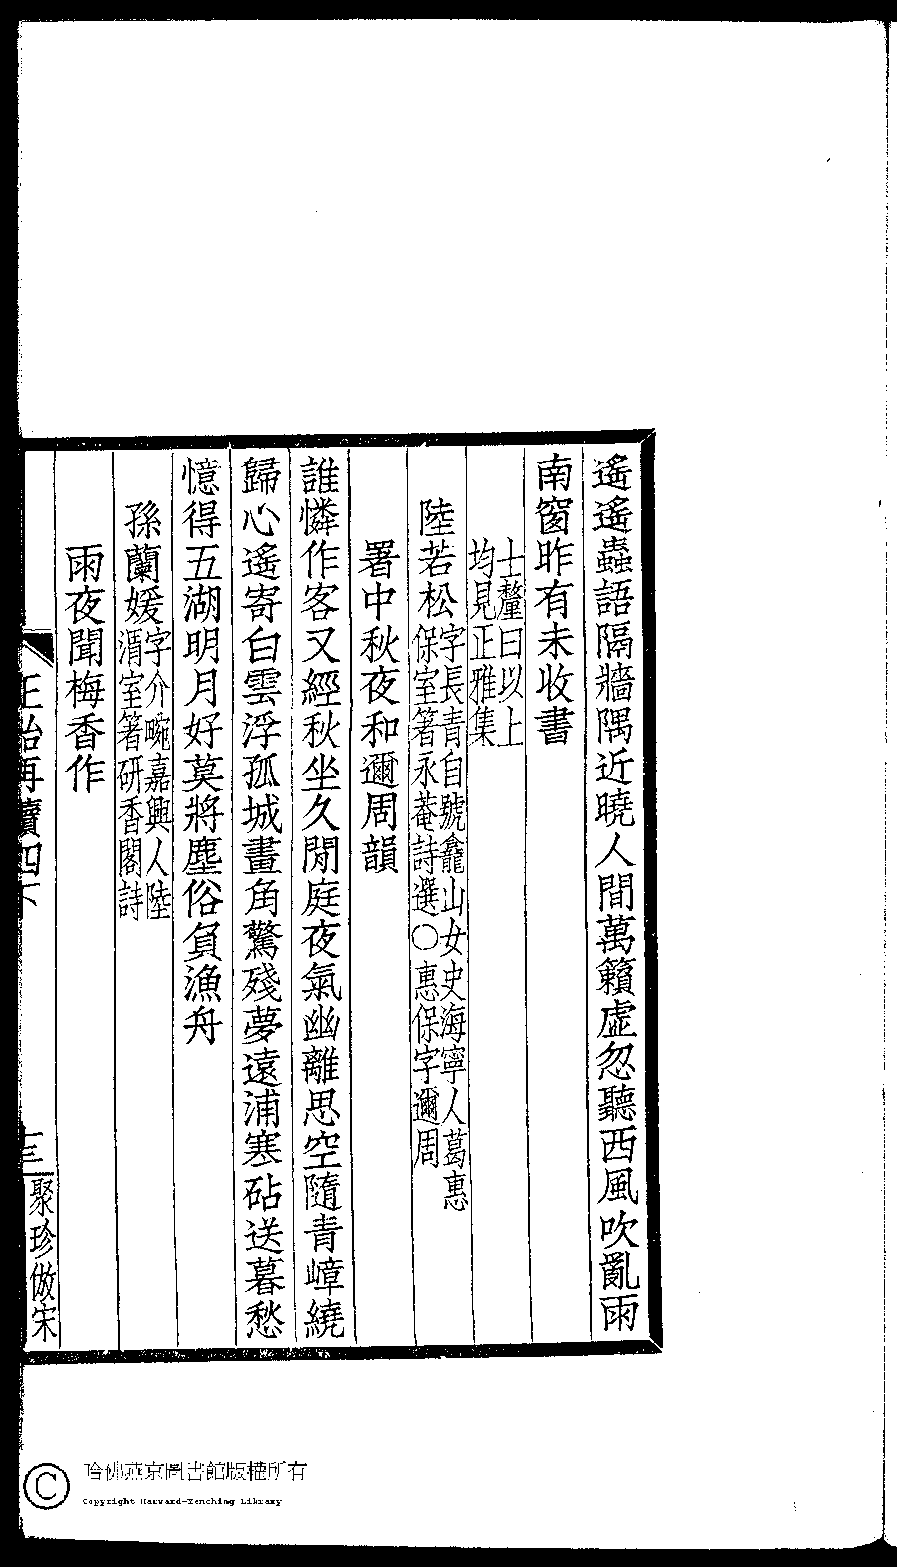 遙遙蟲語隔牆隅近曉人間萬籟虛忽聽西風吹亂雨
南窗昨有未收書
士釐曰以上
均見正雅集
陸若松字長青自號龕山女史海寧人葛惠
保室著永菴詩選○惠保字邇周
署中秋夜和邇周韻
誰憐作客又經秋坐久閒庭夜氣幽離思空隨青嶂繞
歸心遙寄白雲浮孤城畫角驚殘夢遠浦寒砧送暮愁
憶得五湖明月好莫將塵俗負漁舟
孫蘭媛字介畹嘉興人陸
渭室著研香閣詩
雨夜聞梅香作
正始再續四下
三
聚珍倣宋
哈佛燕京圖書館版權所有
Copyright Harvard-Yenching Library